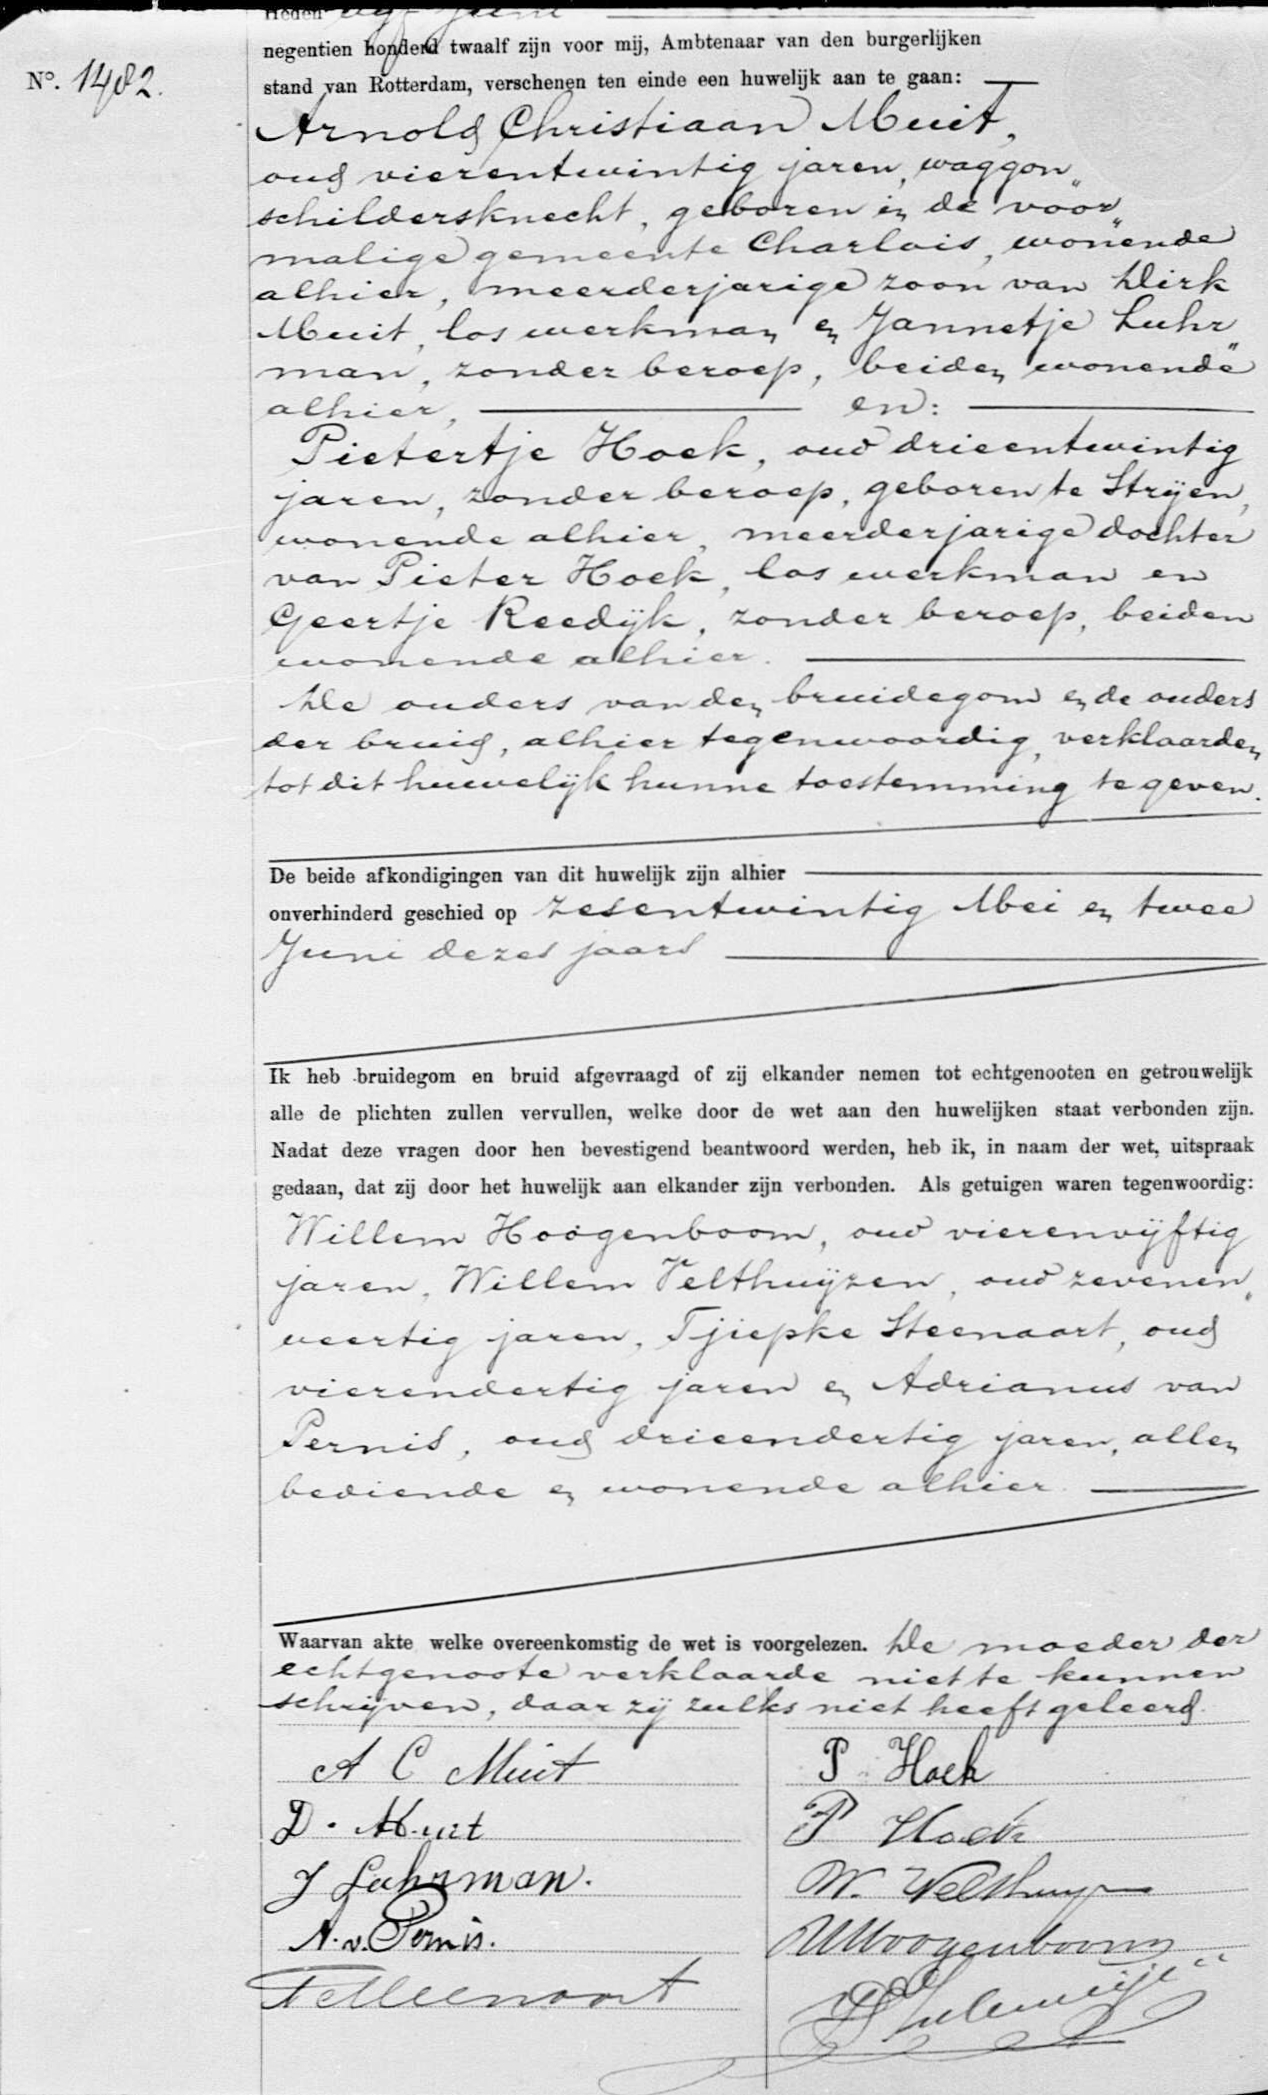 Heden Juni
No. 1482.
negentien honderd twaalf zijn voor mij, Ambtenaar van den burgerlijken
stand van Rotterdam, verschenen ten einde een huwelijk aan te gaan:
Arnold Christiaan Muit,
oud vierentwintig jaren, waggon„
schildersknecht, geboren in de voor„
malige gemeente Charlois, wonende
alhier, meerderjarige zoon van Dirk
Muit, los werkman en Jannetje Luhr„
man, zonder beroep, beiden wonende
alhier, en:
Pietertje Hoek, oud drieentwintig
jaren, zonder beroep, geboren te Strijen,
wonende alhier, meerderjarige dochter
van Pieter Hoek, los werkman en
Geertje Reedijk, zonder beroep, beiden
wonende alhier.
De ouders van den bruidegom en de ouders
der bruid, alhier tegenwoordig, verklaarden
tot dit huwelijk hunne toestemming te geven.
De beide afkondigingen van dit huwelijk zijn alhier
onverhinderd geschied op zesentwintig Mei en twee
Juni dezes jaars
Ik heb bruidegom en bruid afgevraagd of zij elkander nemen tot echtgenooten en getrouwelijk
alle de plichten zullen vervullen, welke door de wet aan den huwelijken staat verbonden zijn.
Nadat deze vragen door hen bevestigend beantwoord werden, heb ik, in naam der wet, uitspraak
gedaan, dat zij door het huwelijk aan elkander zijn verbonden. Als getuigen waren tegenwoordig:
Willem Hoogenboom, oud vierenvijftig
jaren, Willem Velthuijzen, oud zevenen„
veertig jaren, Tjiepke Steenaart, oud
vierendertig jaren en Adrianus van
Pernis, oud drieendertig jaren, allen
bediende en wonende alhier.
Waarvan akte welke overeenkomstig de wet is voorgelezen. De moeder der
echtgenoote verklaarde niet te kunnen
schrijven, daar zij zulks niet heeft geleerd.
A C Muit
P Hoek
D. Muit
P Hoek
J Luhrman.
W. Velthuyzen
A. v. Pernis.
WHoogenboom